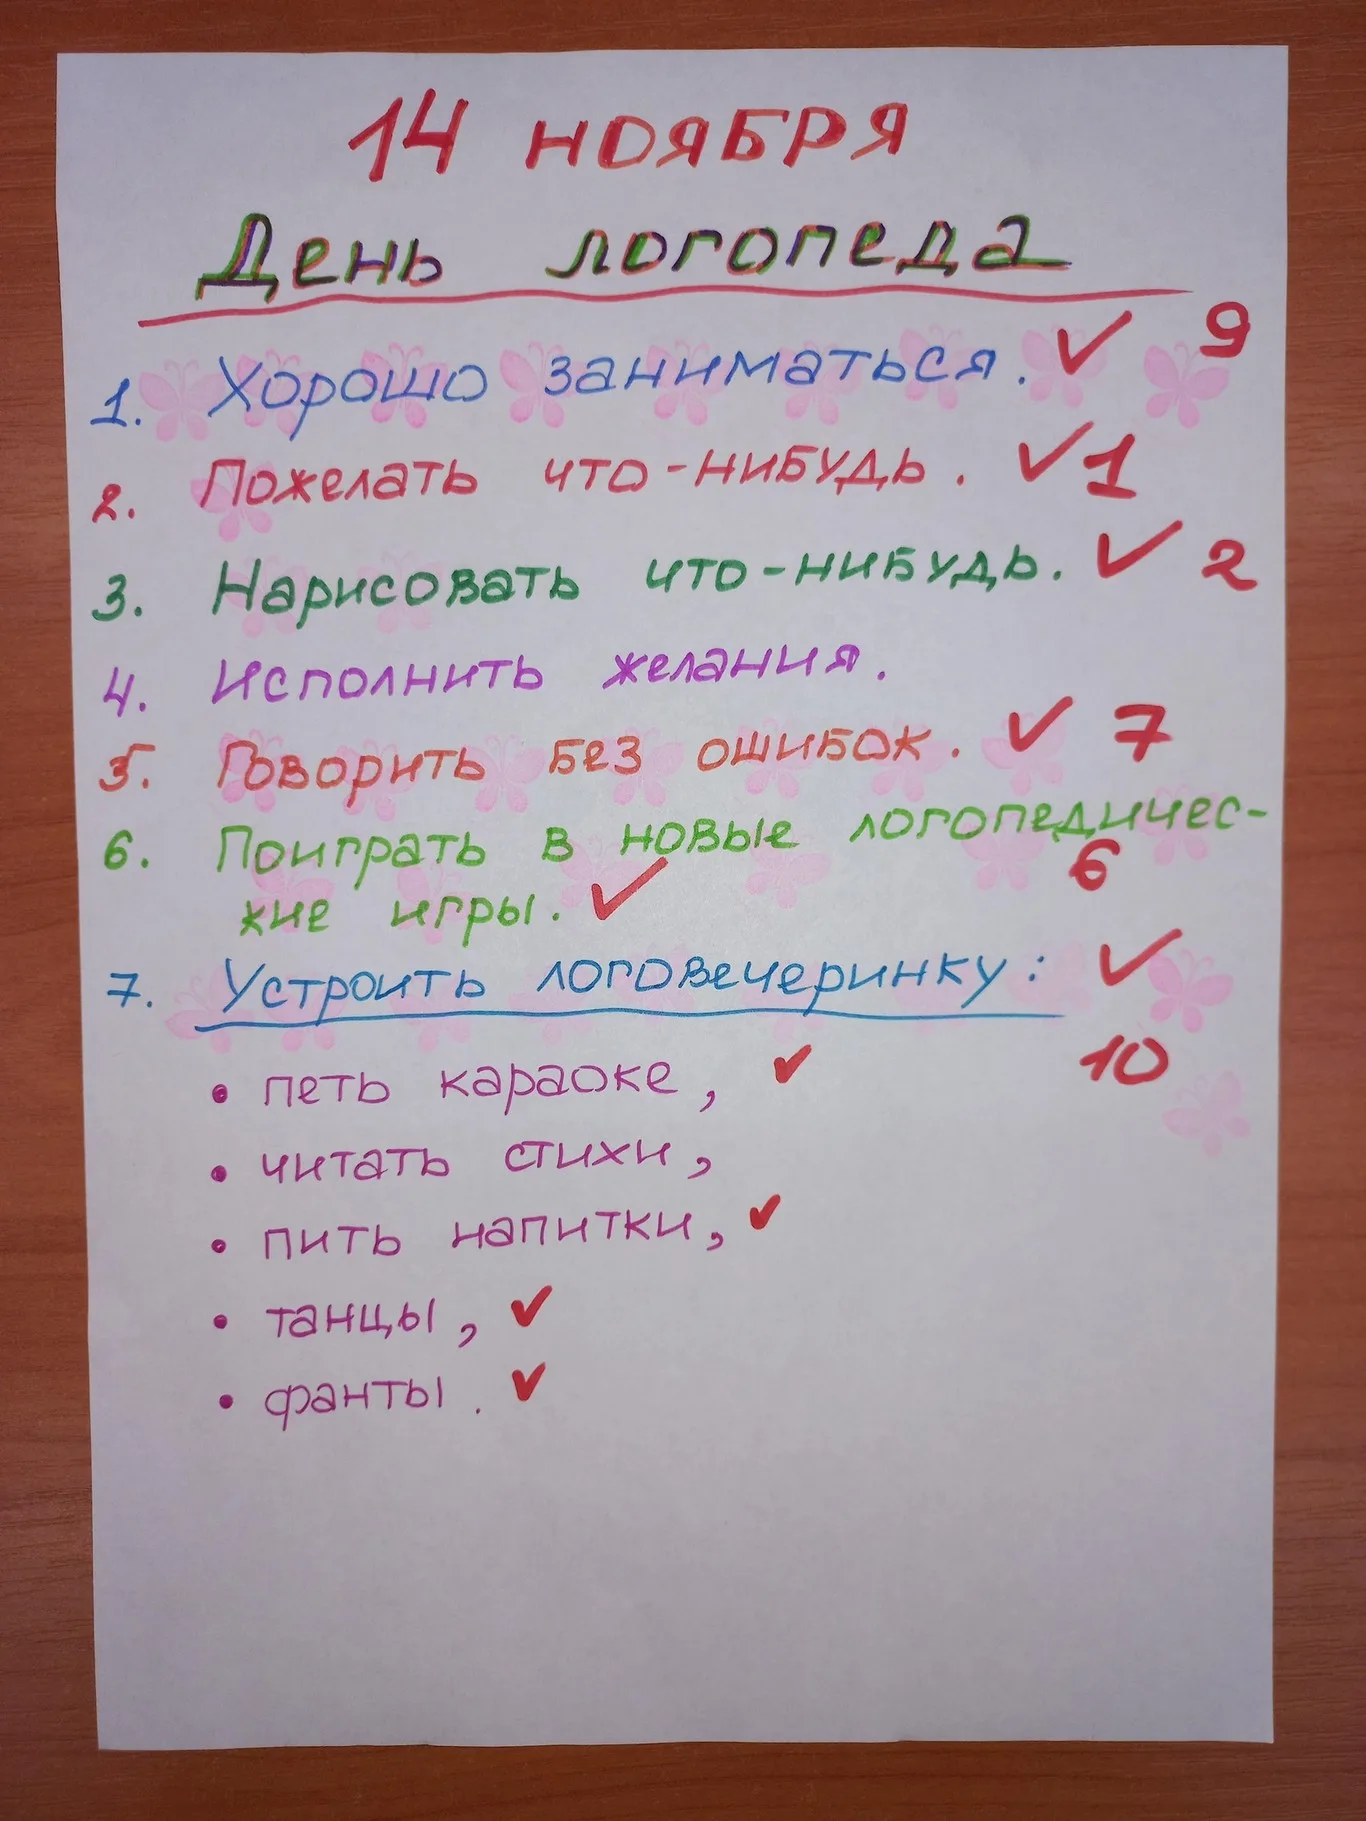 14 ноября
День логопеда
1. Хорошо заниматься. ✓ 9
2. Пожелать что-нибудь. ✓ 1
3. Нарисовать что-нибудь. ✓ 2
4. Исполнить желания.
5. Говорить без ошибок. ✓ 7
6. Поиграть в новые логопедичес-
кие игры. ✓ 6
7. Устроить логовечеринку: ✓
10
• петь караоке, ✓
• читать стихи,
• пить напитки, ✓
• танцы, ✓
• фанты. ✓